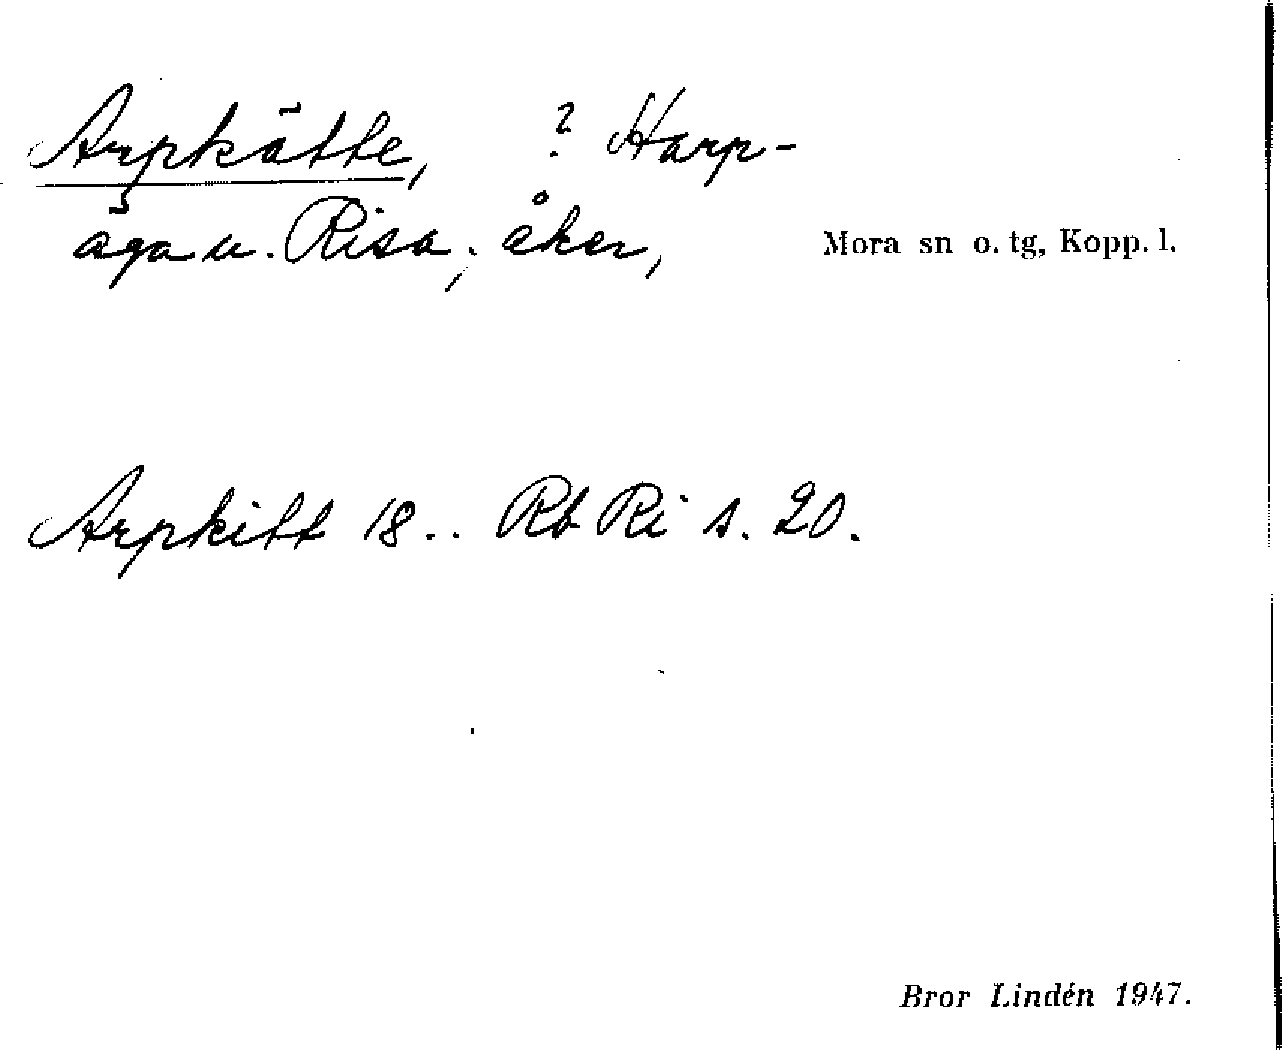 Arpkätte, ? Harp-
äga u. Risa; åker,
Mora sn o. tg, Kopp. l.
Arpkitt 18.. Rb Ri s. 20.
Bror Lindén 1947.